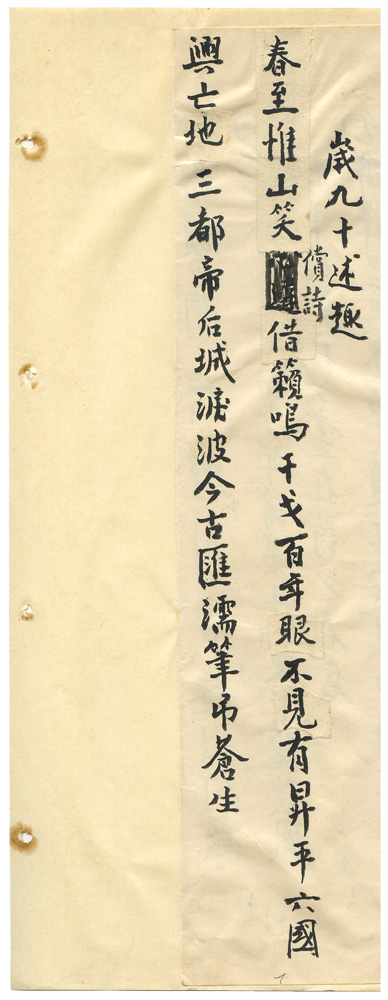 歲九十述趣
春至惟山笑償詩借籟鳴干戈百年眼不見有昇平六國
興亡地三都帝后城淚波今古匯濡筆吊蒼生